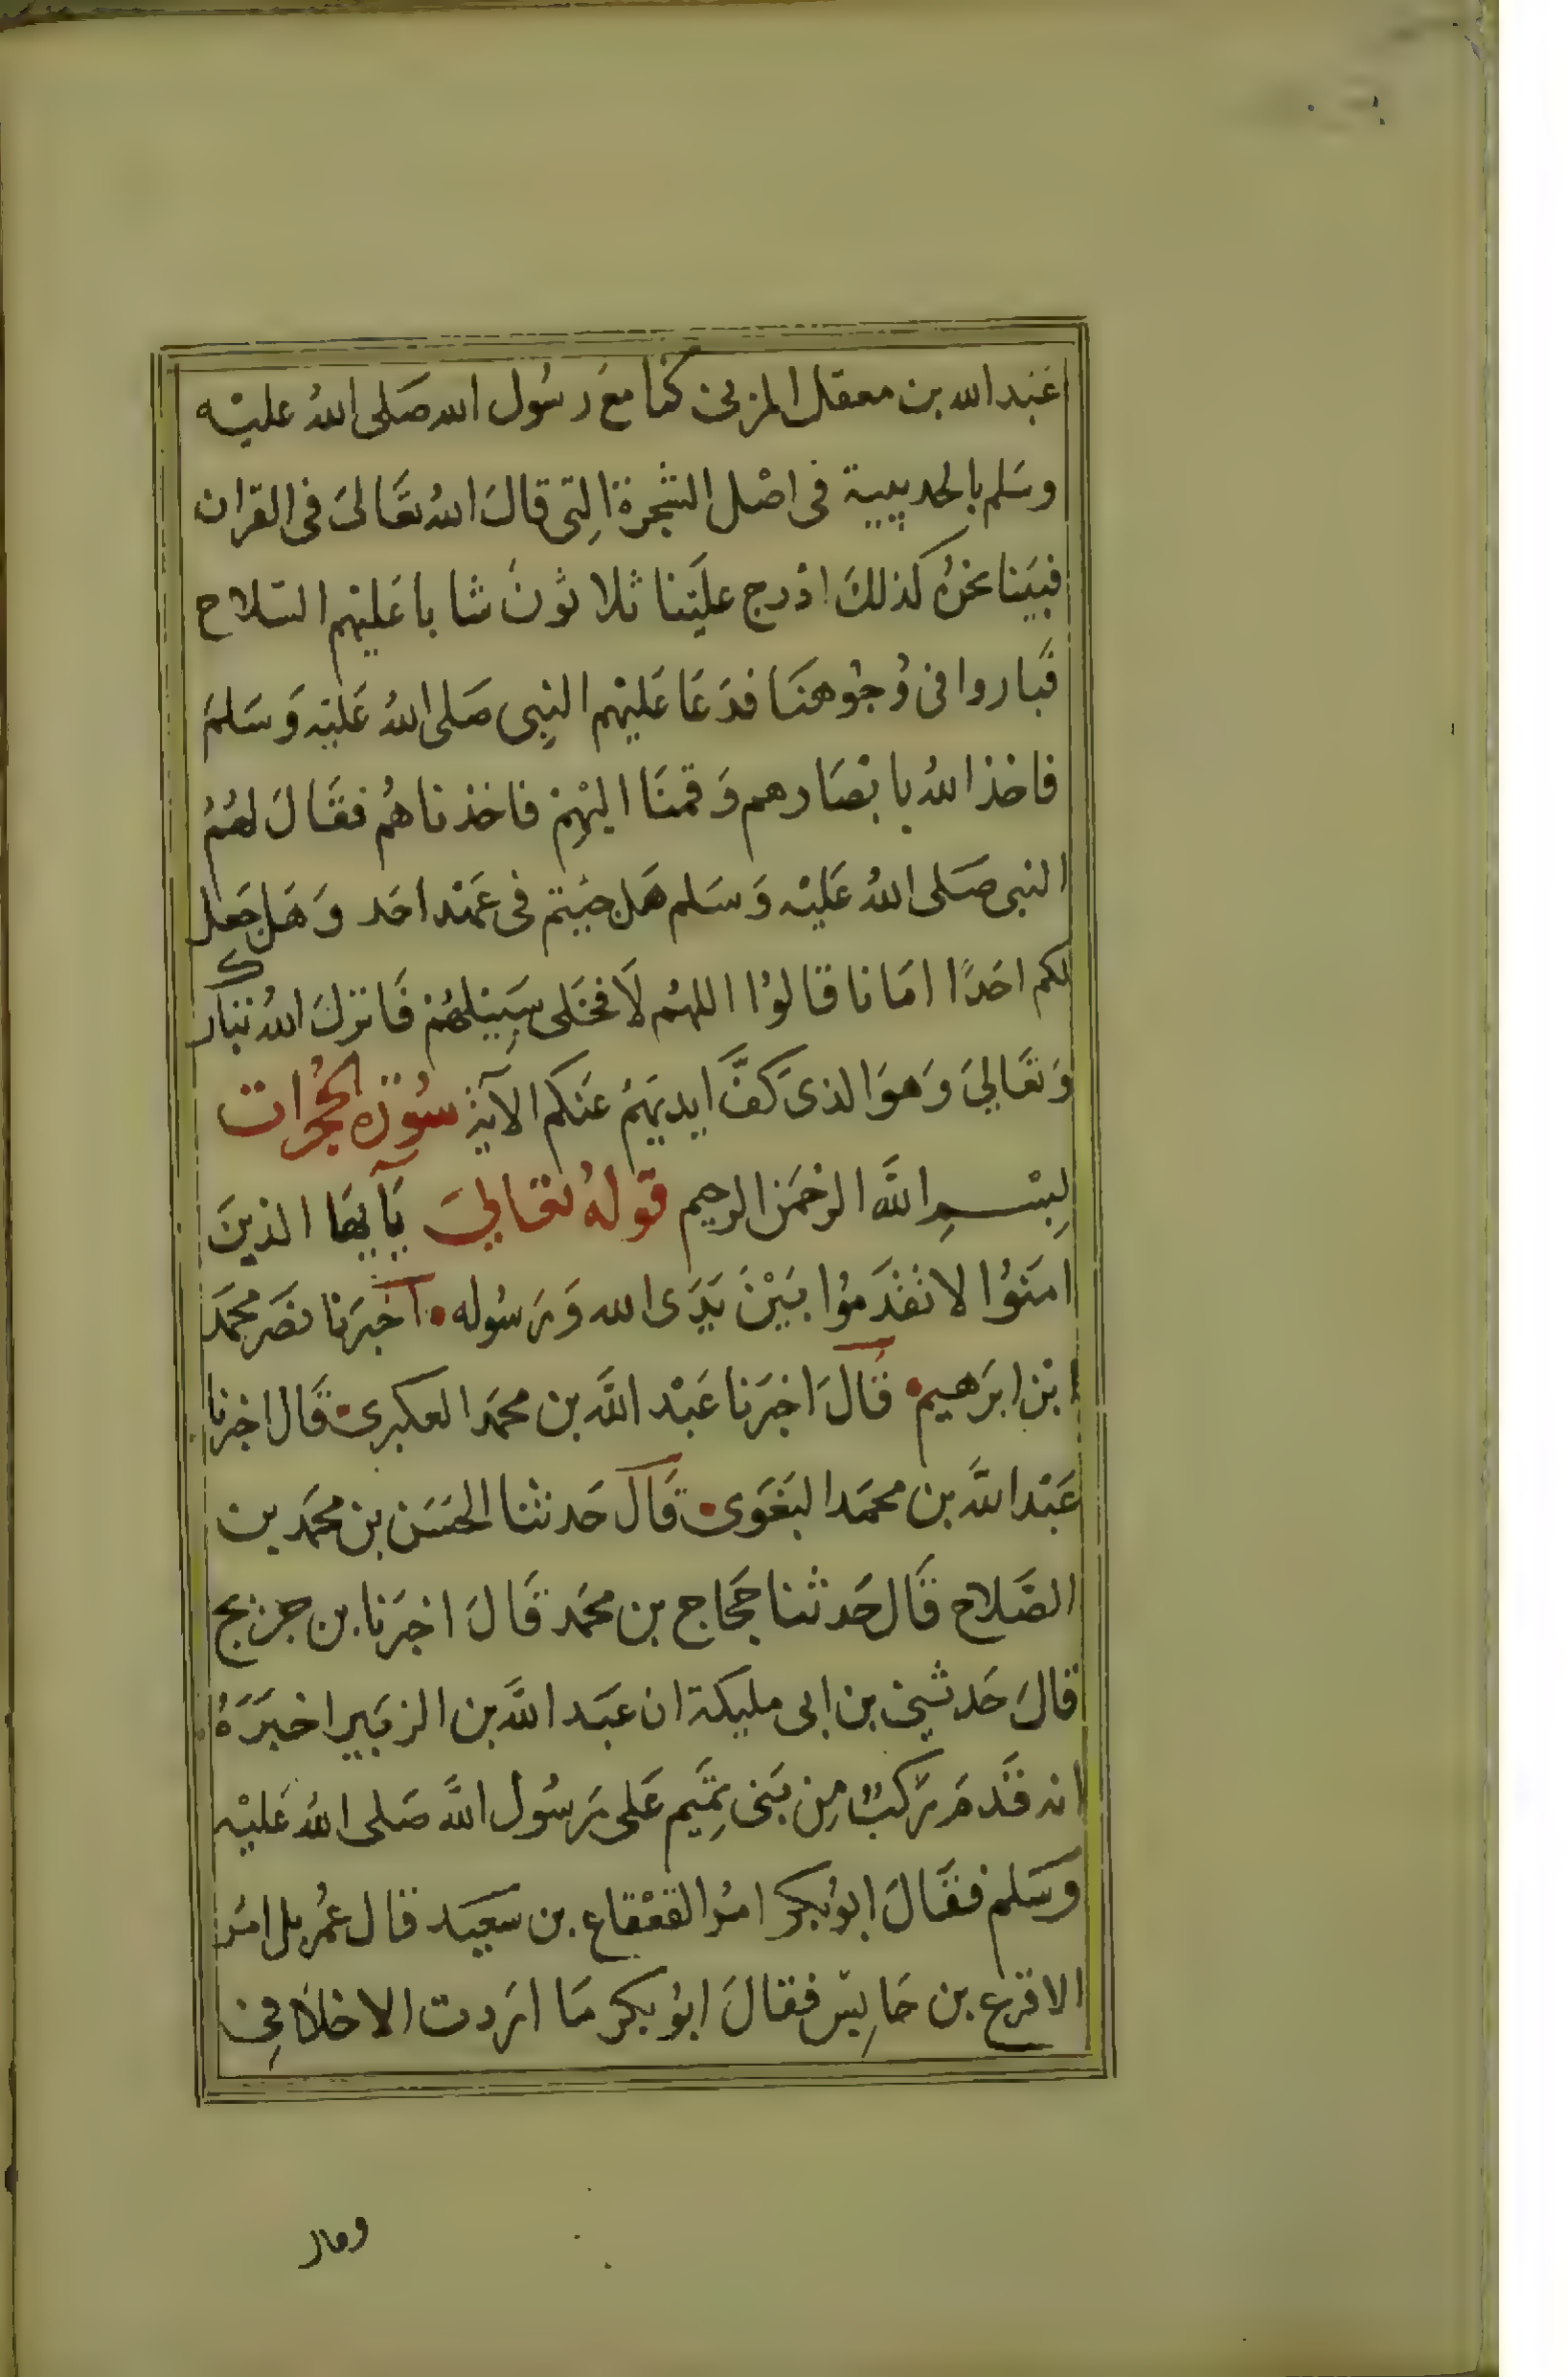 عبد الله بن معقل المزنى كنا مع رسول الله صلى الله عليه
وسلم بالحديبية فى اصل الشجرة التى قال الله تعالى فى القران
فبينا نحن كذلك اذ رج علينا ثلاثون شابا عليهم السلاح
فباروا فى وجوهنا فدعا عليهم النبى صلى الله عليه وسلم
فاخذ الله بابصارهم وقمنا اليهم فاخذناهم فقال لهم
النبى صلى الله عليه وسلم هل جيتم فى عهد احد وهل جعل
لكم احدا امانا قالوا اللهم لا فخلى سبيلهم فانزل الله تبارك
وتعالى وهو الذى كف ايديهم عنكم الآية سورة الحجرات
بسم الله الرحمن الرحيم قوله تعالى يآيها الذين
امنوا لا تقدموا بين يدى الله ورسوله اخبرنا نصر محمد
بن ابرهيم قال اخبرنا عبد الله بن محمد العكبرى قال اخبرنا
عبد الله بن محمد البغوى قال حدثنا الحسن بن محمد بن
الصلاح قال حدثنا حجاج بن محمد قال اخبرنا بن جريج
قال حدثنى بن ابى مليكة ان عبد الله بن الزبير اخبره
انه قدم ركب من بنى تميم على رسول الله صلى الله عليه
وسلم فقال ابو بكر امر القعقاع بن سعيد قال عمر بل امر
الاقرع بن حابس فقال ابو بكر ما اردت الا خلافى
وقال